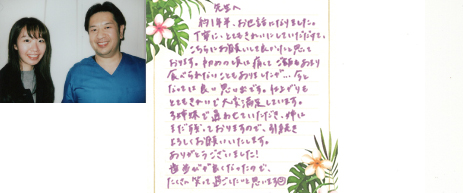 先生へ
約1年半、お世話になりました。
丁寧に、とてもきれいにしていただけて、
こちらにお願いして良かったと思って
おります。初めの頃は痛して ご飯もあまり
食べられないこともありましたが…今と
なっては良い思い出です。仕上がりも
とてもきれいで大変満足しています。
3姉妹で通わせていただき、姉は
まだ残っておりますので、引続き
よろしくお願いいたします。
ありがとうございました!
歯並びが良くなったので、
たくさん笑って過ごしたいと思います